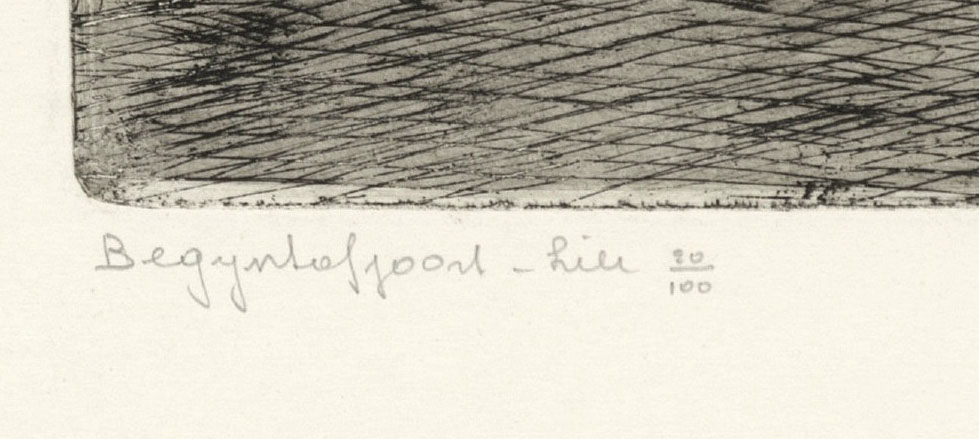 Begynhofpoort - Lier 20/100